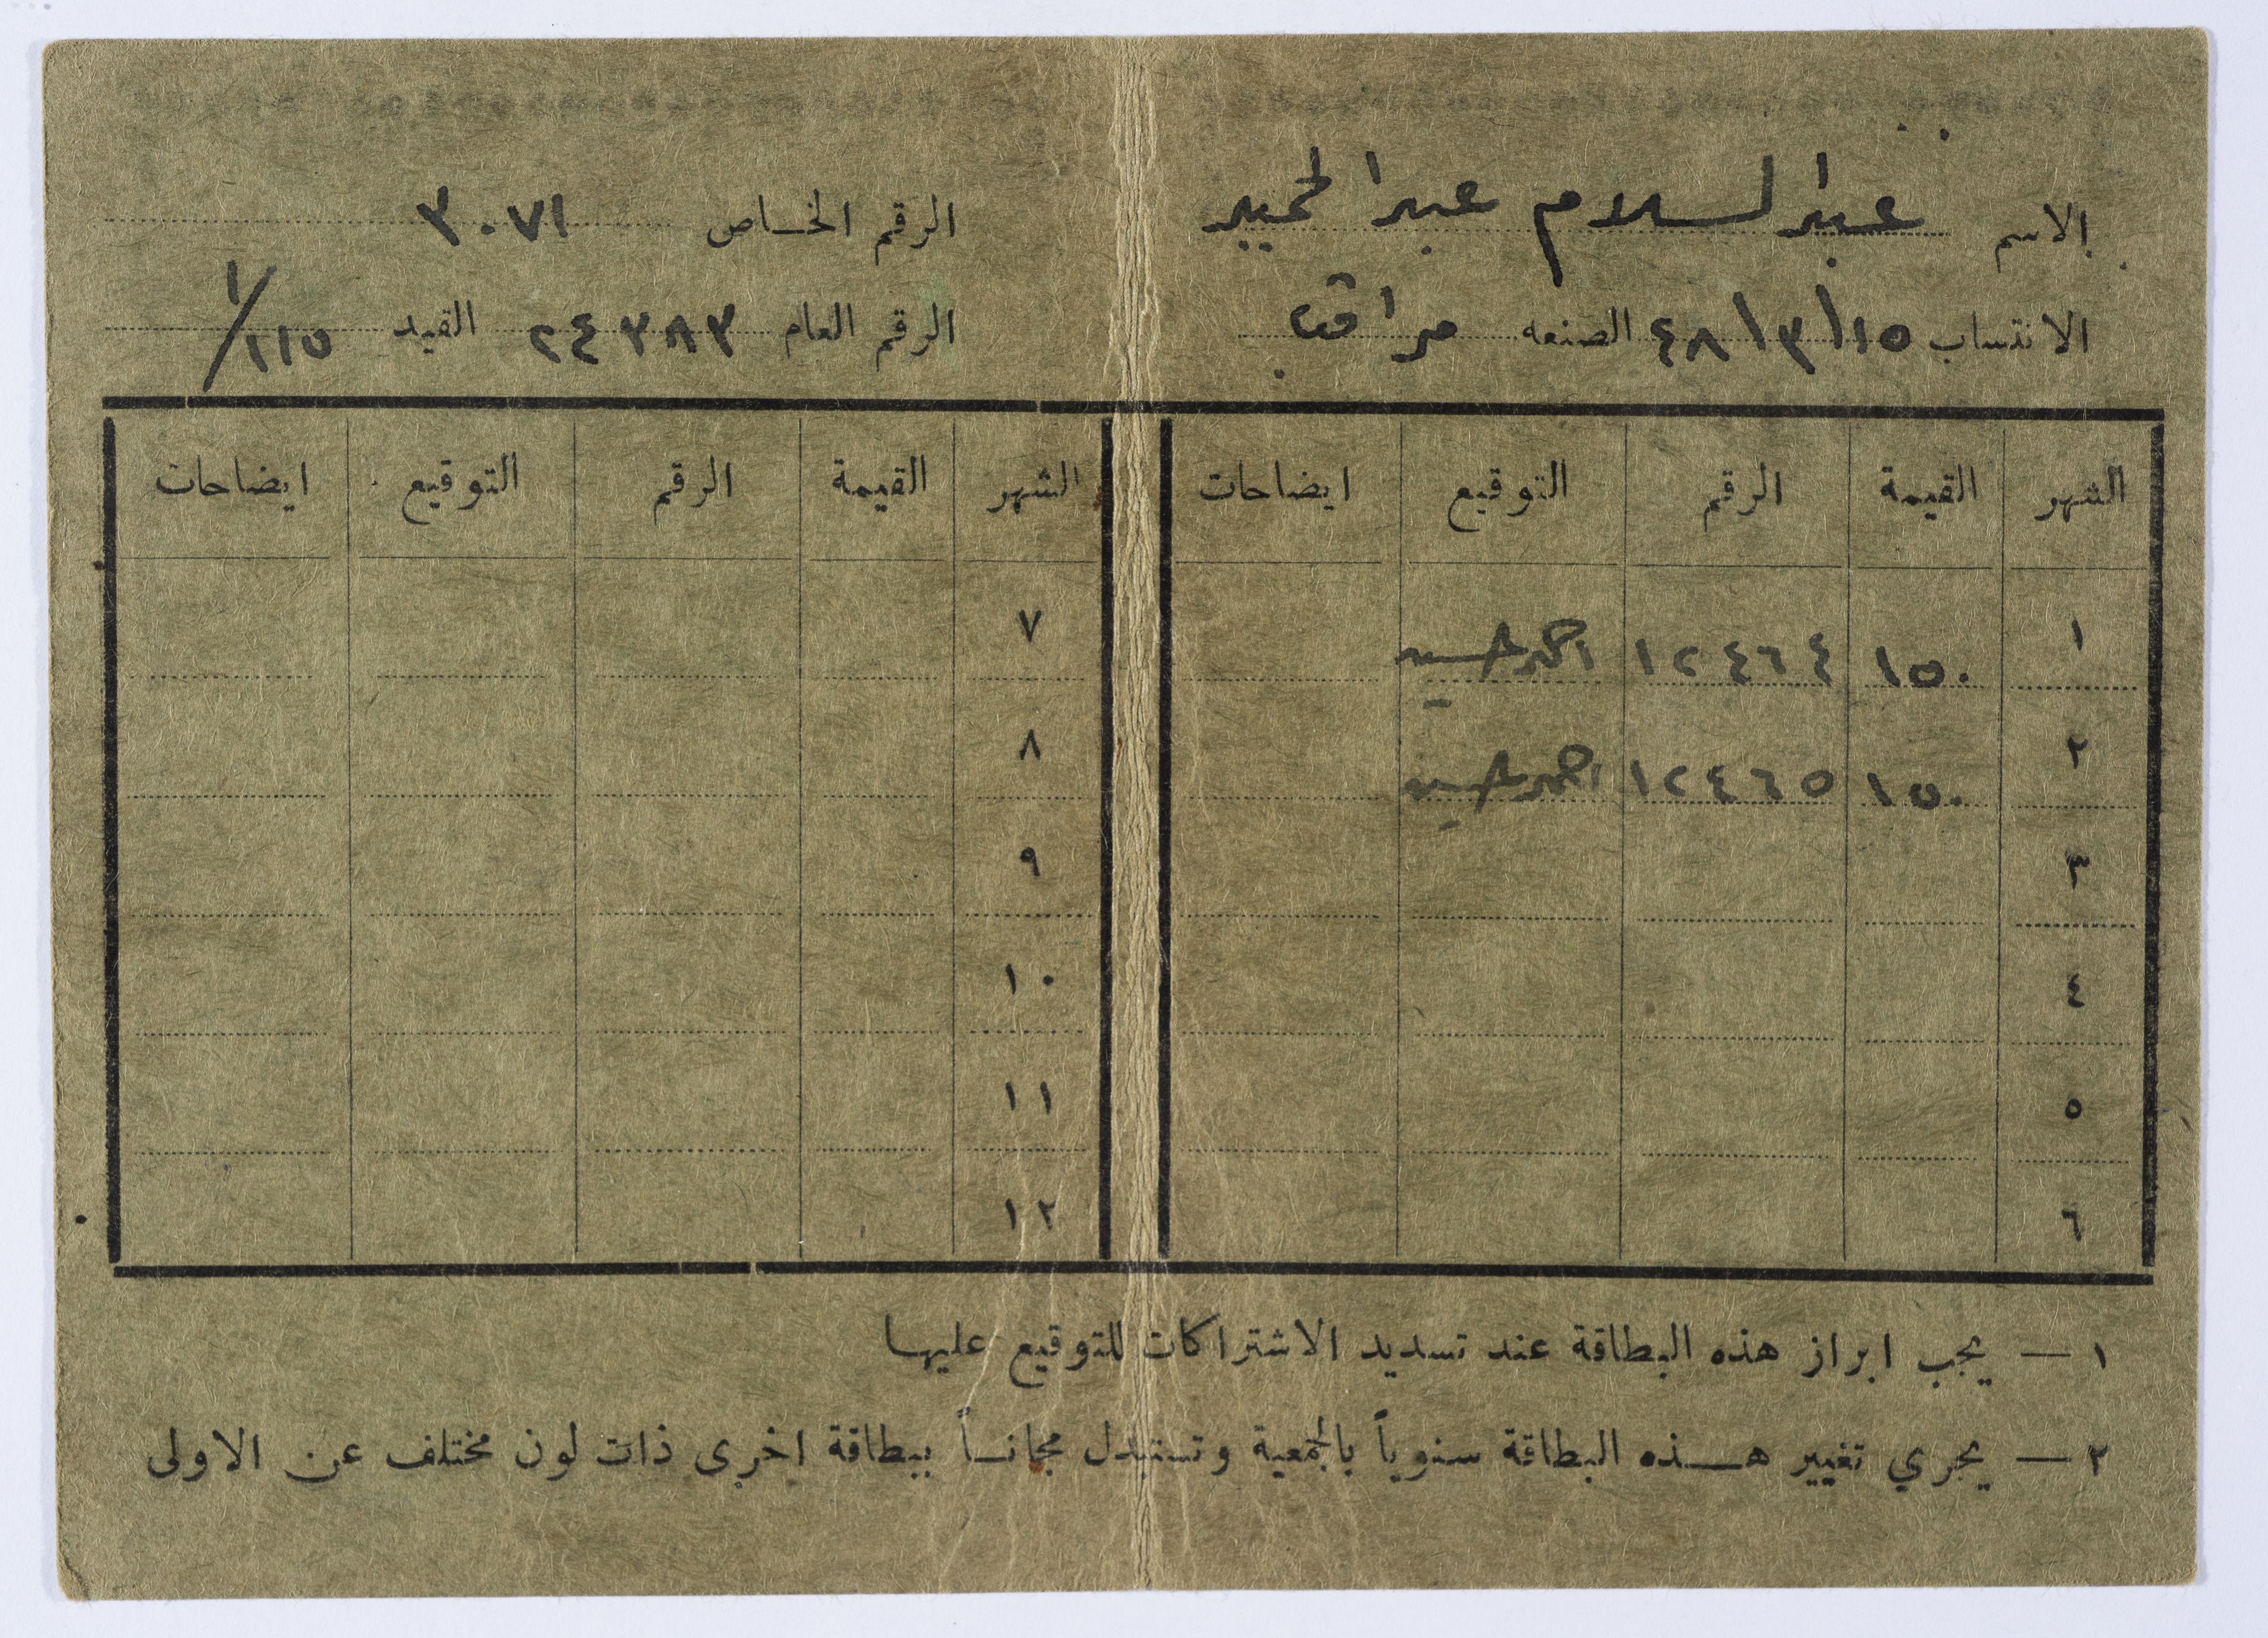 الاسم عبد السلام عبد الحميد
الانتساب ١٥/٣/٤٨ الصنعه مراقب
الرقم الخاص ٣٠٧١
الرقم العام ٢٤٢٨٣ القيد ٢١٥/١
الشهر القيمة الرقم التوقيع ايضاحات
١ ١٥٠ ١٢٤٦٤ احمد حسين
٢ ١٥٠ ١٢٤٦٥ احمد حسين
٣
٤
٥
٦
الشهر القيمة الرقم التوقيع ايضاحات
٧
٨
٩
١٠
١١
١٢
١ — يجب ابراز هذه البطاقة عند تسديد الاشتراكات للتوقيع عليها
٢ — يجري تغيير هـذه البطاقة سنوياً بالجمعية وتستبدل مجانـاً ببطاقة اخرى ذات لون مختلف عن الاولى